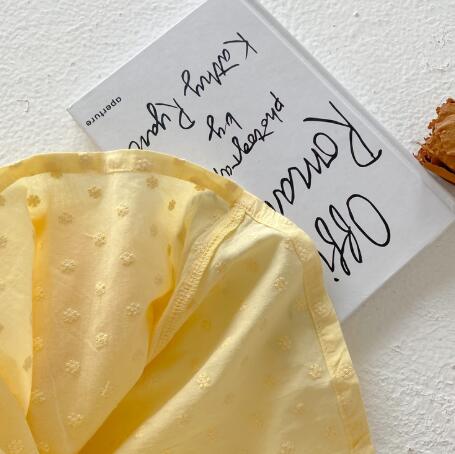 Offi
Roman
photograp
by
Kathy Rya
aperture